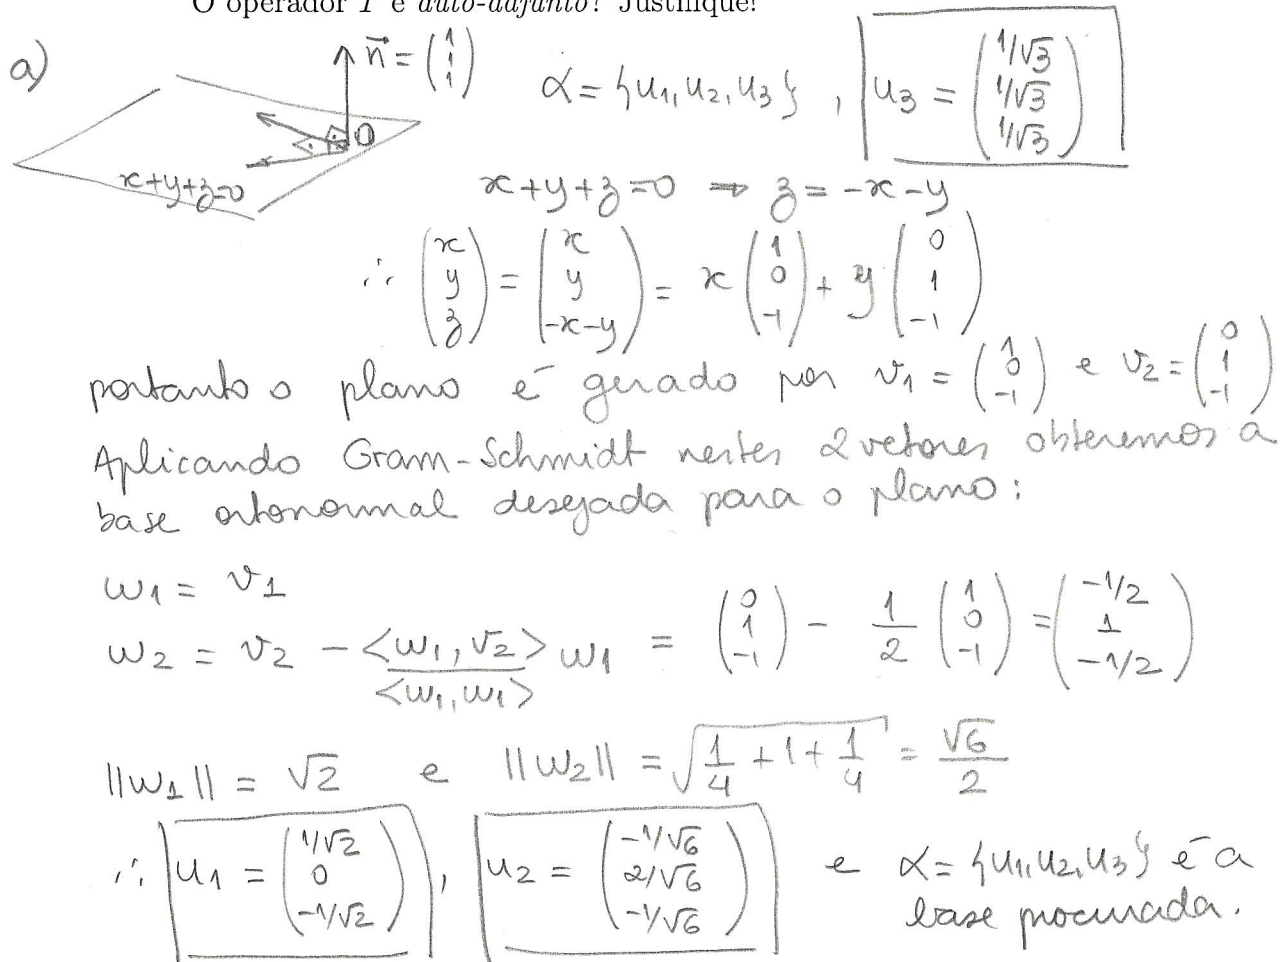 O operador T é auto-adjunto? Justifique!
a) n⃗ = (1 1 1) α = {u₁, u₂, u₃} , u₃ = (1/√3 1/√3 1/√3)
O
x+y+z=0
x+y+z=0 ⇒ z = -x-y
∴ (x y z) = (x y -x-y) = x (1 0 -1) + y (0 1 -1)
portanto o plano é gerado por v₁ = (1 0 -1) e v₂ = (0 1 -1)
Aplicando Gram-Schmidt nestes 2 vetores obteremos a
base ortonormal desejada para o plano:
w₁ = v₁
w₂ = v₂ - <w₁, v₂>/<w₁, w₁> w₁ = (0 1 -1) - 1/2 (1 0 -1) = (-1/2 1 -1/2)
||w₁|| = √2 e ||w₂|| = √(1/4 + 1 + 1/4) = √6/2
∴ u₁ = (1/√2 0 -1/√2) , u₂ = (-1/√6 2/√6 -1/√6) e α = {u₁, u₂, u₃} é a
base procurada.